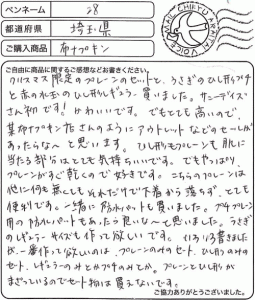 ペンネーム 28
都道府県 埼玉県
ご購入商品 布ナプキン
ご自由に商品に関するご感想などお書きください。
クリスマス限定のプレーンのセットと、うさぎのひし形プチ
と赤の水玉のひし形レギュラー買いました。サニーデイズ
さん初です! かわいいです。でもとても高いので
某布ナプキン屋さんのようにアウトレットなどのセールが
あったらなんと思います。ひし形もプレーンも肌に
当たる部分はとても気持ちいいです。でもやっぱり
プレーンがすぐ乾くので好きです。こちらのプレーンは
他に何も無しでもそれだけで下着から落ちず、とても
便利です。一緒に防水パットも買いました。プチプレーン
用の防水パットもあったら良いなーと思いました。うさぎ
のレギュラーサイズも作って欲しいです。いろいろ書きました
が、一番作って欲しいのは、プレーンのみのセット、ひし形のみの
セット、レギュラーのみとかプチのみとか。プレーンとひし形が
まざっているのでセット物は買えないです。
ご協力ありがとうございました。